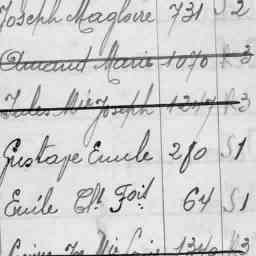 Joseph Magloire 731 S 2
Amand Marie 1070 R 3
Jules Mie Joseph 1347 R 3
Gustave Emile 280 S 1
Emile Cht Fois 64 S 1
Mie 3